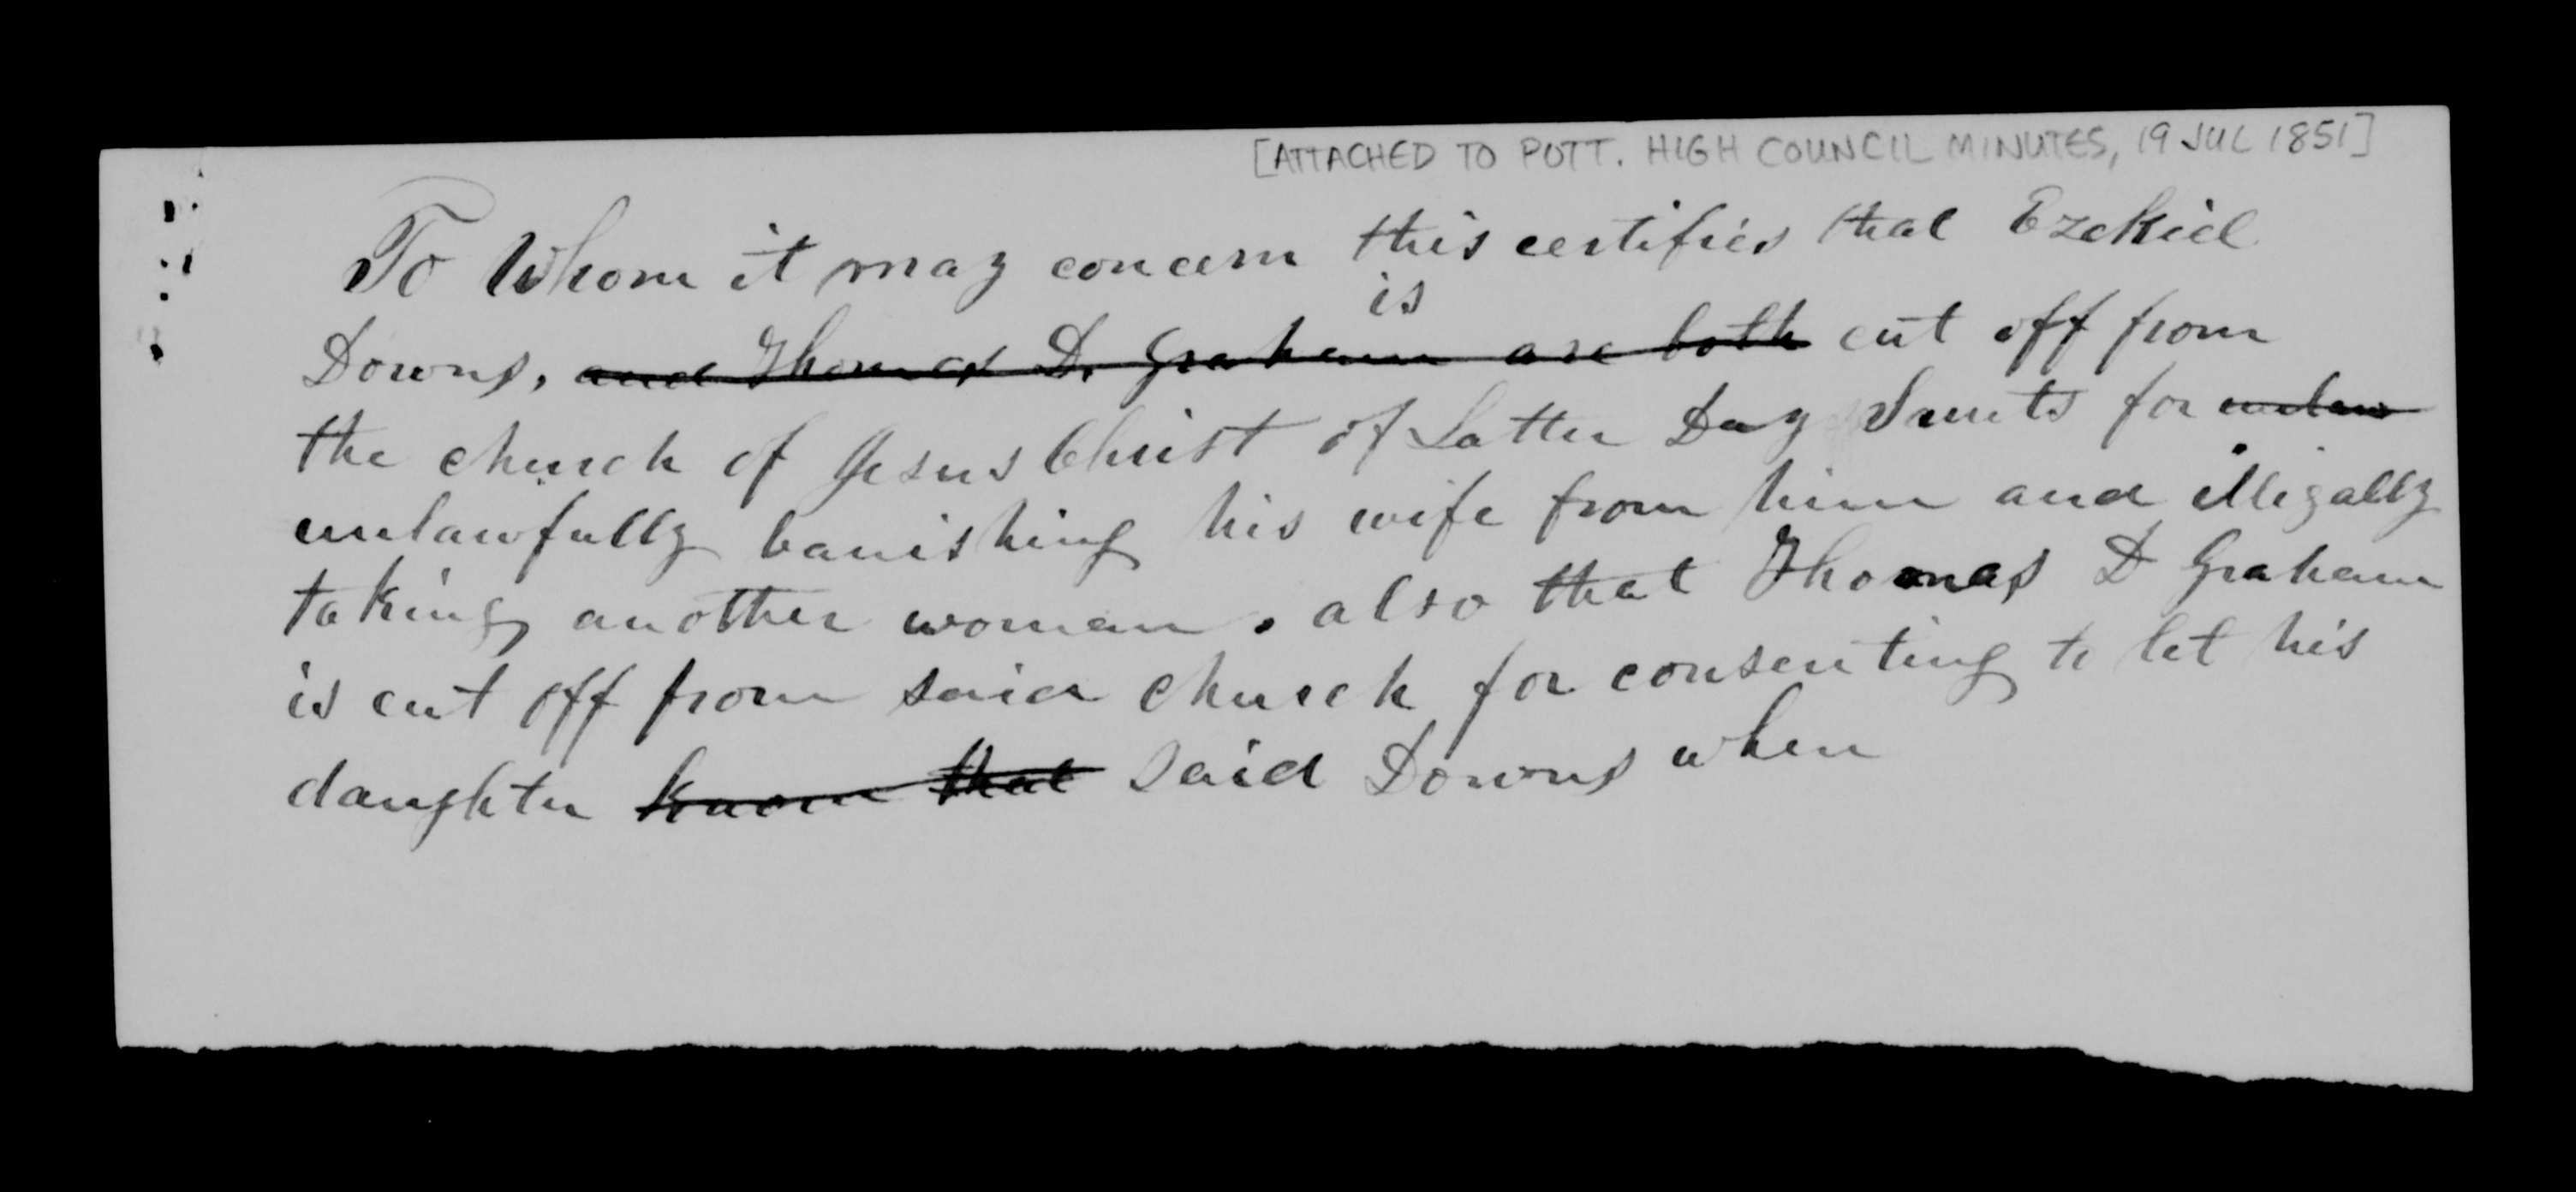 [ATTACHED TO POTT. HIGH COUNCIL MINUTES, 19 JUL 1851]
To Whom it may concern this certifies that Ezekiel
is
Downs, and Thomas D. Graham are both cut off from
the church of Jesus Christ of Latter Day Saints for unlaw
unlawfully banishing his wife from him and illigally
taking another woman. also that Thomas D Graham
is cut off from said church for consenting to let his
daughter know that said Downs when